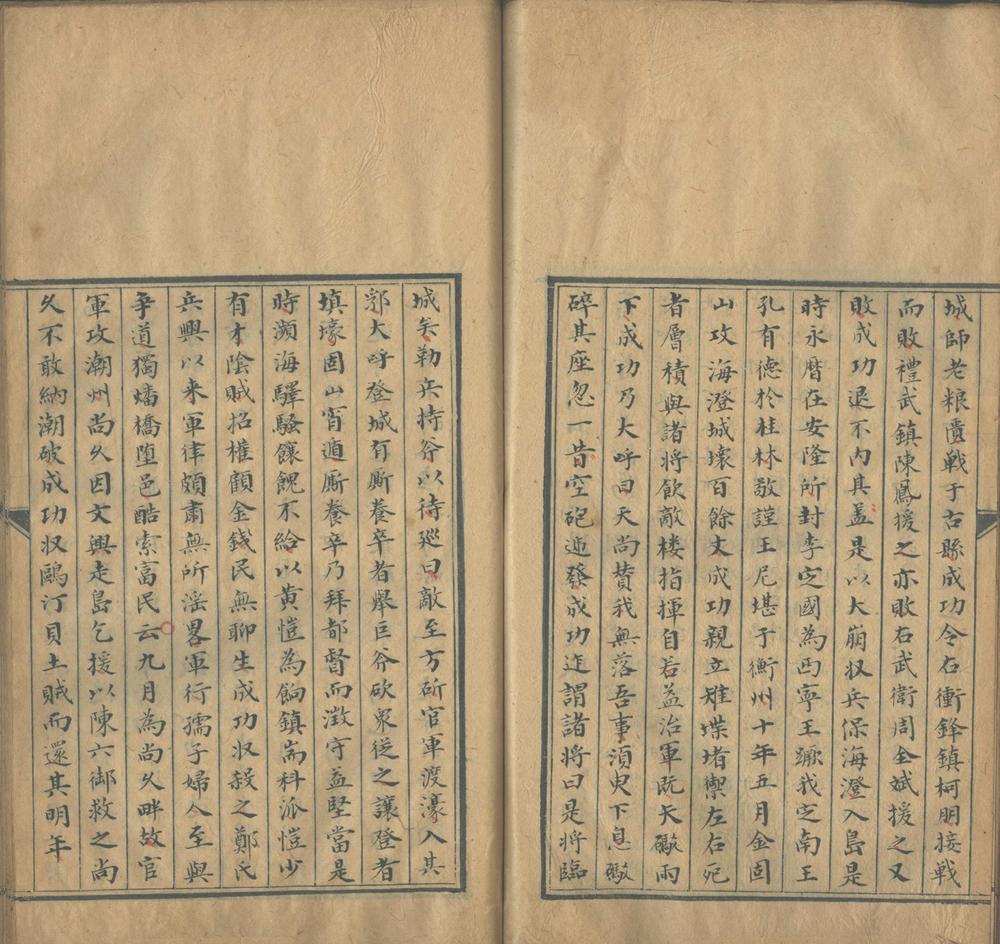 城師老粮匱戰于古縣成功令右衝鋒鎮柯朋接戰
而敗禮武鎮陳鳳援之亦敗右武衛周全斌援之又
敗成功退不內其盖是以大崩収兵保海澄入島是
時永曆在安隆所封李定國為西寧王蹶我定南王
孔有德於桂林敬謹王尼堪于衡州十年五月金固
山攻海澄城壞百餘丈成功親立雉堞堵禦左右死
者層積與諸將飲敵楼指揮自若益治軍既矢礮雨
下成功乃大呼曰天尚賛我無落吾事須臾下息礮
碎其座忽一昔空砲遞發成功迬謂諸将曰是将臨
城矣勒兵持斧以待廵曰敵至方斫官軍渡濠入其
郛大呼登城有厮養卒者舉巨斧砍衆従之讓登者
填壕固山宵遁厮養卒乃拜都督而澂守益堅當是
時瀕海驛騷饟餽不給以黄愷為餉鎮耑科派愷少
有才陰賊招權顧金錢民無聊生成功収殺之鄭氏
兵興以来軍律頗肅無所滛畧軍行孺子婦人至與
爭道獨燔橋堕邑酷索富民云九月為尚久畔故官
軍攻潮州尚久因文興走島乞援以陳六御救之尚
久不敢納潮破成功収鷗汀貝土賊而還其明年